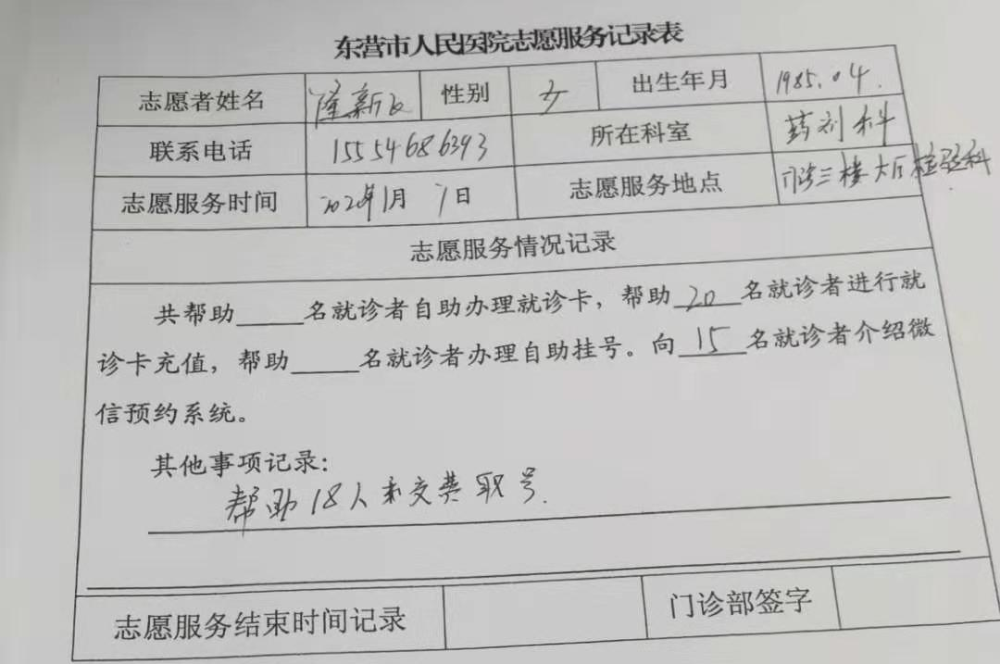 东营市人民医院志愿服务记录表
志愿者姓名 性别 女 出生年月 1985.04.
联系电话 15554686393 所在科室 药剂科
志愿服务时间 2020年1月7日 志愿服务地点 门诊三楼大厅检验科
志愿服务情况记录
共帮助_____名就诊者自助办理就诊卡，帮助 20 名就诊者进行就
诊卡充值，帮助_____名就诊者办理自助挂号。向 15 名就诊者介绍微
信预约系统。
其他事项记录：
帮助18人 取号.
志愿服务结束时间记录 门诊部签字